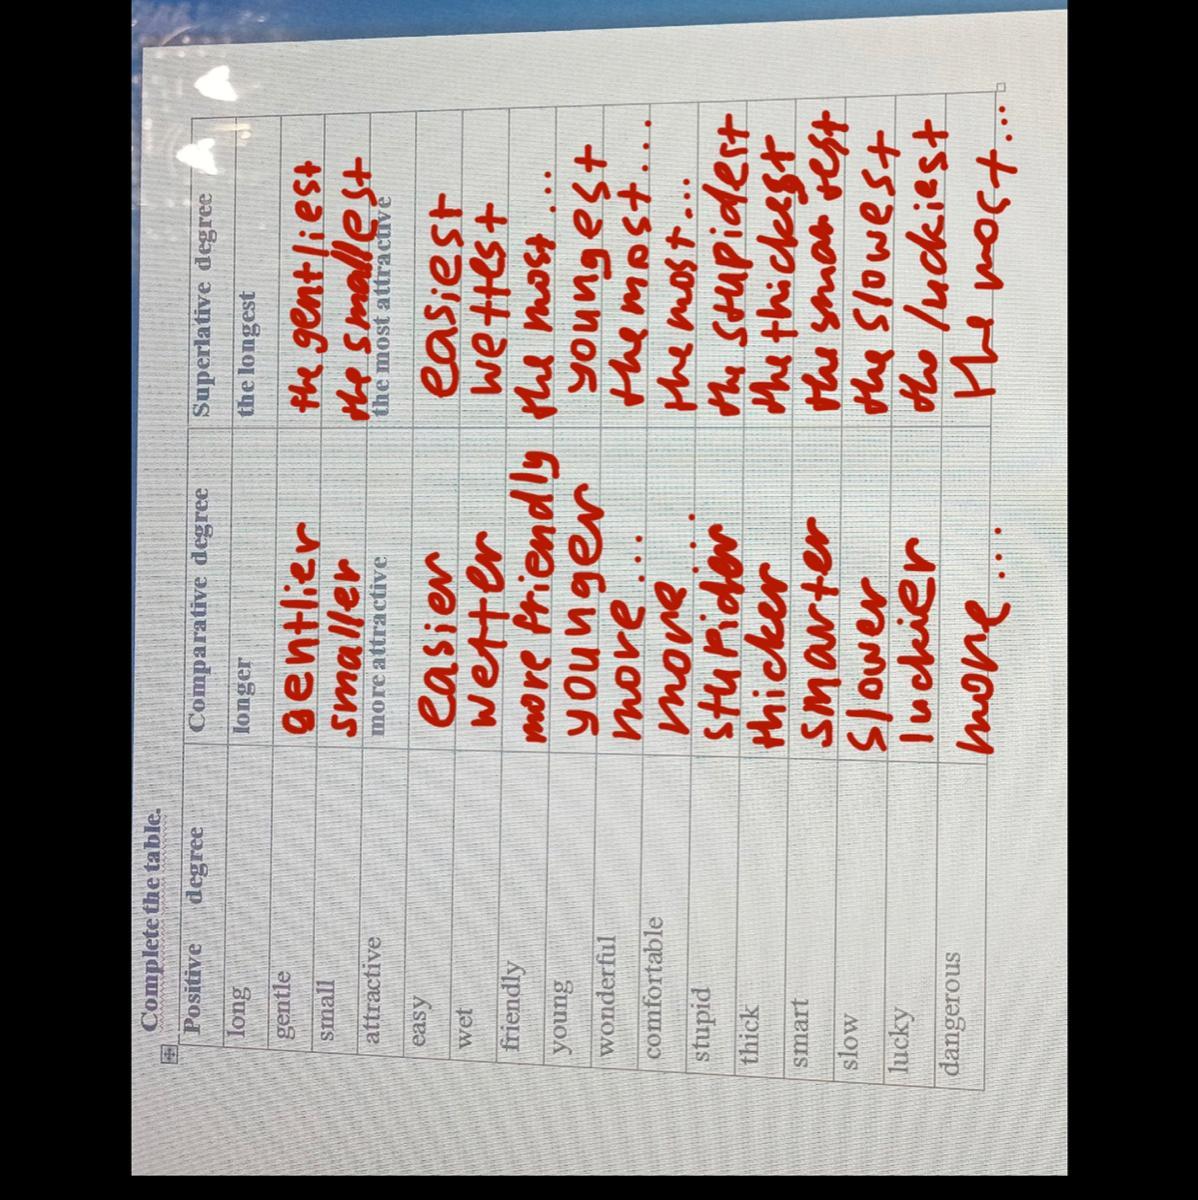 Complete the table.
Positive degree Comparative degree Superlative degree
long longer the longest
gentle gentlier the gentliest
small smaller the smallest
attractive more attractive the most attractive
easy easier easiest
wet wetter wettest
friendly more friendly the most ...
young younger youngest
wonderful more ... the most ...
comfortable more ... the most ...
stupid stupider the stupidest
thick thicker the thickest
smart smarter the smartest
slow slower the slowest
lucky luckier the luckiest
dangerous more ... the most ...